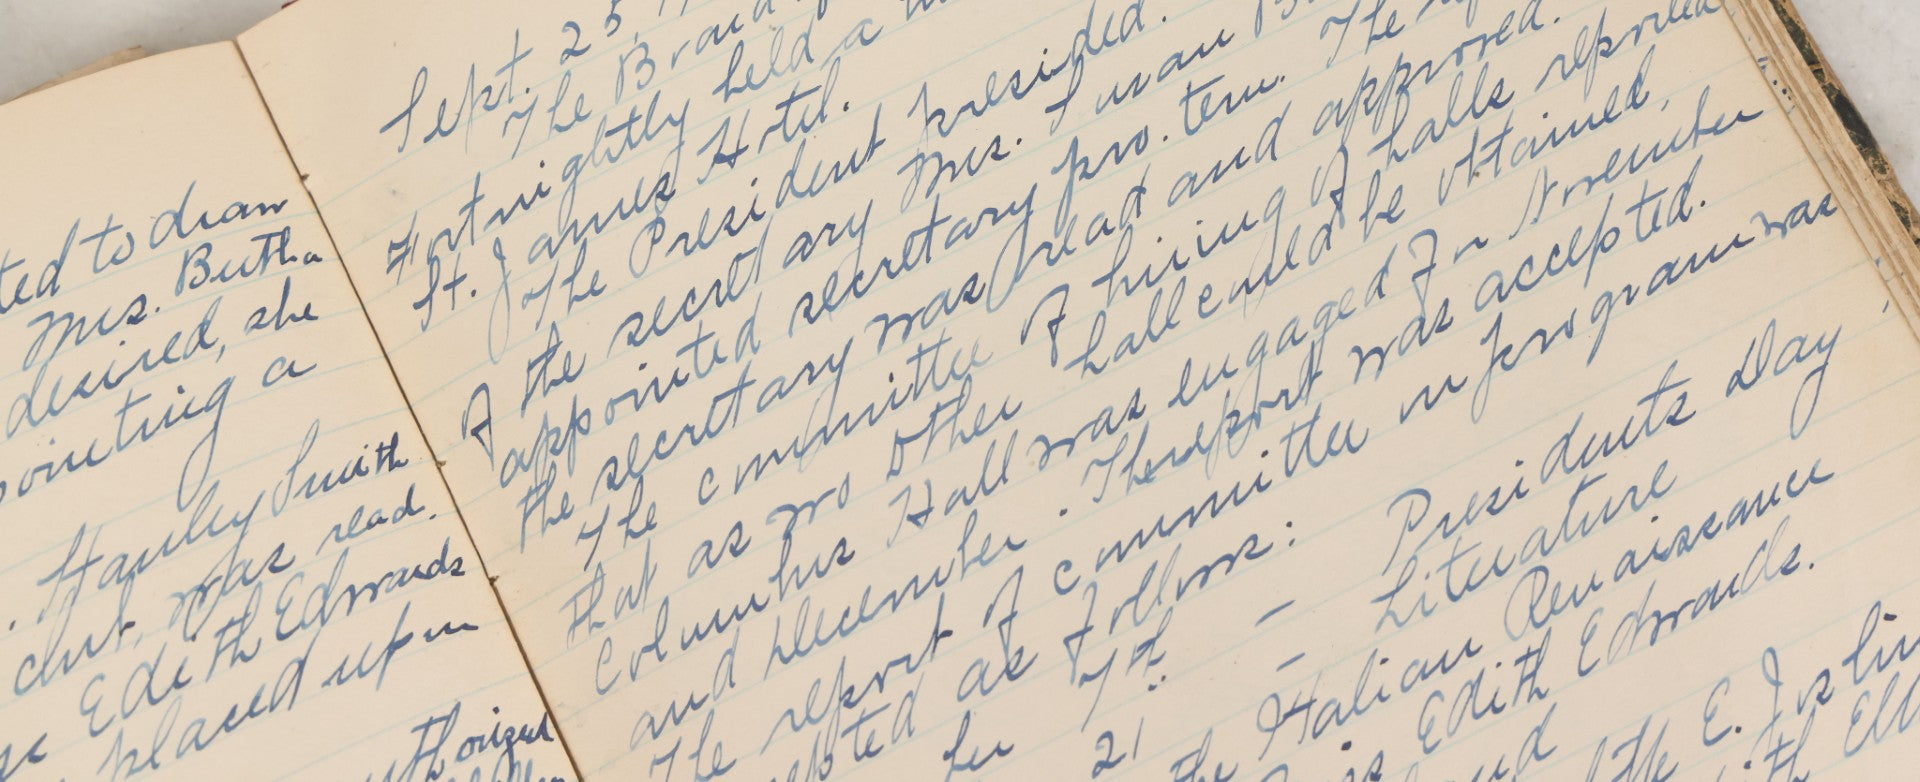 ted to draw
Mrs. Bertha
desired, she
pointing a
. Stanley Smith
read.
Edith Edwards
placed upon
uthorized
Sept. 25,
The Board
Fortnightly held a
St. James Hotel.
The President presided.
of the secretary Mrs. Susan
appointed secretary pro. tem. The
the secretary was read and approved.
The committee of hiring of halls reported
that as no other hall could be obtained,
Columbus Hall was engaged for November
and December. The report was accepted.
The report of committee on program was
epted as follows:
7th. – Presidents Day
ber 21 – Literature
the Italian Renaissance
Miss Edith Edwards.
E. Joslin